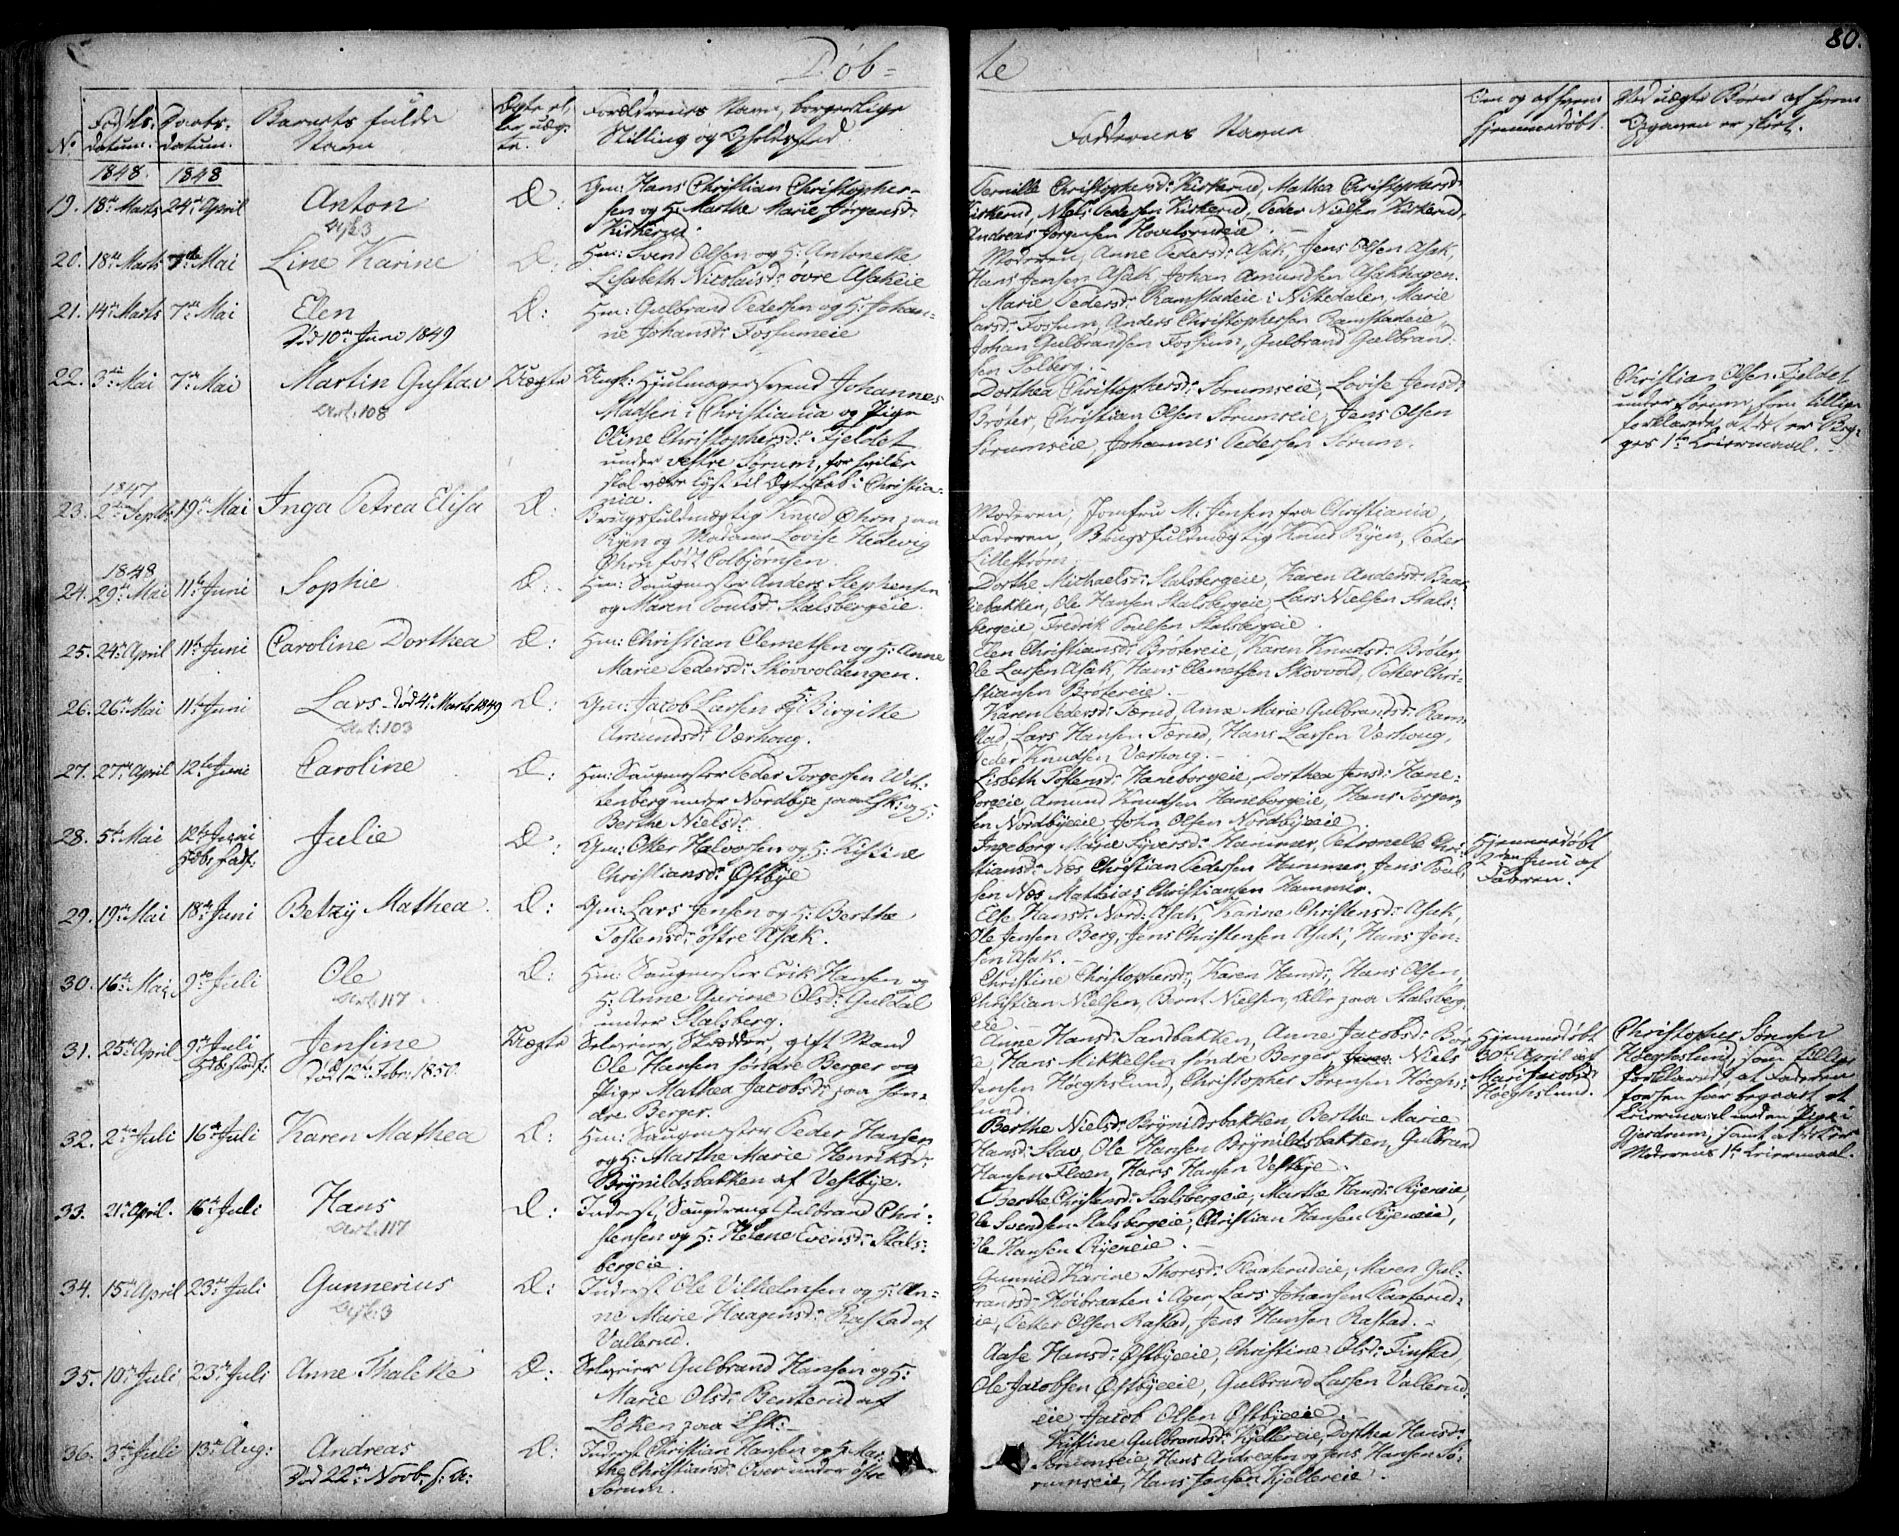 Døb-
te
80.
No
Fødsels-
datum.
Daabs-
datum.
Barnets fulde
Navn
Ægte el-
ler uæg-
te.
Forældrenes Navn, borgerlige
Stilling og Opholdssted.
Faddernes Navne
Om og af hvem
hjemmedøbt.
Ved uægte Børn af hvem
Opgaven er skeet.
1848. 1848
19. 18de Marts 24de April Anton Æ:
Attest 3
Gm: Hans Christian Christopher-
sen og H: Marthe Marie Jørgensd:
Kirkerud.
Pernille Christophersd: Kirkerud, Mathea Christophersd:
Kirkerud, Niels Pedersen Kirkerud, Peder Nielsen Kirkerud,
Andreas Jørgensen
20. 18de Marts 7de Mai Line Karine Æ:
Hm: Svend Olsen og H: Antonette
Lisabeth Nicolaisd: øvre Asakeie
Moderen, Anne Pedersd: Asak, Jens Olsen Asak,
Hans Jensen Asak, Johan Amundsen Asakhagen.
21. 14de Marts 7de Mai Elen Æ:
Død 10de Juni 1849
Hm: Gulbrand Pedersen og H: Johan-
ne Johansd: Fossumeie
Marie Pedersd: Ramstadeie i Nittedalen, Marie
Larsd: Fossum, Anders Christophersen Ramstadeie,
Johan Gulbrandsen Fossum, Gulbrand Gulbrand-
sen Solberg.
22. 3die Mai 7de Mai Martin Gustav Uægte
Att: 108
Ungk: Hjulmagersvend Johannes
Madsen i Christiania og Pige
Oline Christophersd: Fjeldet
under vestre Sørum, for hvilke
skal være lyst til Ægteskab i Christia-
nia.
Dorthea Christophersd: Sørumseie, Lovise Jensd:
Brøter, Christian Olsen Sørumseie, Jens Olsen
Sørumseie, Johannes Pedersen Sørum.
Christian Olsen Fjeldet
under Sørum, som tillige
forklarede, at det er Beg-
ges 1ste Leiermaal.
1847
23. 2den Septbr 19de Mai Inga Petrea Elisa Æ:
Brugsfuldmægtig Knud Øhrn paa
Ryen og Madame Lovise Hedevig
Øhrn født Colbjørnsen.
Moderen, Jomfru M. Jensen fra Christiania,
Faderen, Brugsfuldmægtig Knud Ryen, Peder
Lillestrøm.
1848
24. 29de Mai 11te Juni Sophie Æ:
Hm: Saugmester Anders Stephensen
og Maren Poulsd: Stalsbergeie.
Dorthe Michaelsd: Stalsbergeie, Karen Andersd: Braa-
tebakken, Ole Hansen Stalsbergeie, Lars Nielsen Stals-
bergeie, Fredrik Poulsen Stalsbergeie.
25. 24de April 11te Juni Caroline Dorthea Æ:
Hm: Christian Clemetsen og H: Anne
Marie Pedersd: Skovvoldengen.
Elen Christiansd: Brøtereie, Karen Knudsd: Brøter
Ole Larsen Asak, Hans Clemetsen Skovvold, Petter Chri-
stiansen Brøtereie.
26. 26de Mai 11te Juni Lars Død 4de Marts 1849 Æ:
Att: 103
Gm: Jacob Larsen og H: Birgitte
Amundsd: Værhoug.
Karen Pedersd: Tærud, Anne Marie Gulbrandsd: Ram-
stad, Lars Hansen Tærud, Hans Larsen Værhoug,
Peder Knudsen Værhoug.
27. 27de April 12te Juni Caroline Æ:
Hm: Saugmester Peder Torgersen Wit-
tenberg under Nordbye paa Esk: og H:
Berthe Nielsd:
Lisbeth Tostensd: Haneborgeie, Dorthea Jensd: Hane-
borgeie, Amund Knudsen Haneborgeie, Hans Torger-
sen Nordbyeeie, John Olsen Nordbyeeie.
28. 5te Mai 12te Juni Julie Æ:
Hdbs. stadf:
Gm: Otter Halvorsen og H: Kistine
Christiansd: Østbye
Ingeborg Marie Syversd: Hammer, Petronelle Chri-
stiansd: Næs, Christian Pedersen Hammer, Jens Poul-
sen Næs, Mathias Christiansen Hammer.
Hjemmedøbt
2den Juni af
Faderen.
29. 19de Mai 18de Juni Betzy Mathea. Æ:
Gm: Lars Jensen og H: Berthe
Tostensd: østre Asak.
Else Hansd: Nord: Asak, Karine Christensd: Asak,
Ole Jensen Berg, Jens Christensen Asak, Hans Jen-
sen Asak.
30. 16de Mai 9de Juli Ole Æ:
Att: 117
Hm: Saugmester Erik Hansen og
H: Anne Gurine Olsd: Guldal
under Stalsberg.
Christine Christophersd:, Karen Hansd:, Hans Olsen,
Christian Nielsen, Bernt Nielsen, Alle paa Stalsberg-
eie.
31. 25de April 9de Juli Jensine Uægte
Hdbs. stadf:
Død 12te Febr: 1850.
Selveier, Skrædder, gift Mand
Ole Hansen søndre Berger og
Pige Mathea Jacobsd: paa søn-
dre Berger.
Anne Hansd: Sandbakken, Anne Jacobsd: Ber-
, Hans Mikkelsen søndre Berger, Niels
Jensen Høeghslund, Christopher Sørensen Høeghs-
lund.
Hjemmedøbt
30te April af
Mari Jacobsd:
Høeghslund.
Christopher Sørensen
Høeghslund, som tillige
forklarede, at Faderen
forhen har begaaet et
Leiermaal med en Pige i
Gjerdrum, samt at det er
Moderens 1ste Leiermaal.
32. 2den Juli 16de Juli Karen Mathea Æ:
Hm: Saugmester Peder Hansen
og H: Marthe Marie Henriksd:
Brynildsbakken af Vestbye.
Berthe Nielsd: Brynildsbakken, Berthe Marie
Hansd: Stav, Ole Hansen Brynildsbakken, Gulbrand
Hansen Flaen, Hans Hansen Vestbye.
33. 21de April. 16de Juli Hans Æ:
Att: 117
Inderst, Saugdreng Gulbrand Chri-
stensen og H: Helene Evensd: Stals-
bergeie.
Berthe Christensd: Stalsbergeie, Marthe Hansd: Ryeneie,
Ole Svendsen Stalsbergeie, Christian Hansen Ryeneie,
Ole Hansen Ryeneie.
34. 15de April 23de Juli Gunnerius Æ:
Attest 3
Inderst Ole Vilhelmsen og H: An-
ne Marie Haagensd: Rastad af
Vallerud.
Gunnild Karine Thoresd: Maren Gul-
brandsd: Høibraaten i Ager, Lars Johansen
Petter Olsen Rastad, Jens Hansen Rastad.
35. 10de Juli 23de Juli Anne Thalette Æ:
Selveier Gulbrand Hansen og H:
Marie Olsd: Benterud af
Løken paa Esk:
Aase Hansd: Østbyeeie, Christine Olsd: Finstad,
Ole Jacobsen Østbyeeie, Gulbrand Larsen Vallerud-
eie, Jacob Olsen Østbyeeie.
36. 3die Juli 13de Aug: Andreas Æ:
Død 22de Novb: s: A:
Inderst Christian Hansen og H: Mar-
the Christiansd: Over under østre
Sørum.
Kistine Gulbrandsd: Kjellereie, Dorthea Hansd:
Sørumseie, Hans Andreasen og Jens Hansen Sø-
rumseie, Hans Jensen Kjellereie.